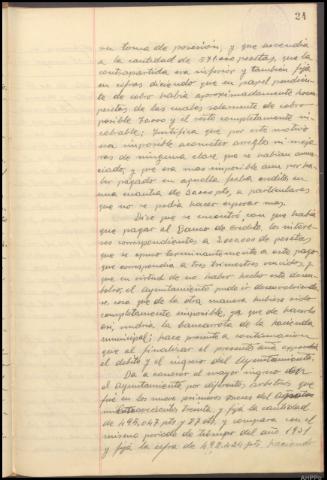 21
su toma de posesión, y que ascendía
a la cantidad de 571.000 pesetas, que la
contrapartida era inferior y también fijó
en cifras diciendo que en papel pendien-
te de cobro había aproximadamente
pesetas de las cuales solamente de cobro
posible 70.000 y el resto completamente in-
cobrable; Justifica que por este motivo
era imposible acometer arreglo ni mejo-
ras de ninguna clase que se habían anun-
ciado, y que era mas imposible aun por ha-
ber pagado en aquella fecha créditos en
una cuantía de pts, a particulares
que no se podía hacer esperar mas.
Dice que se encontró con que había
que pagar al Banco de Crédito, los intere-
ses correspondientes a 2.000.000 de pesetas
que se opuso terminantemente a este pago
que correspondía a tres trimestres vencidos, y
que en virtud de no haber hecho este desem-
bolso, el Ayuntamiento pudo ir desenvolviendo
se, cosa que de la otra manera hubiera sido
completamente imposible, ya que de hacerlo
así, vendría la bancarrota de la hacienda
municipal; hace presente a continuación
que al finalizar el presente año
el debito y el ingreso del Ayuntamiento.
Da a conocer el mayor ingreso
el Ayuntamiento por diferentes arbitrios que
fué en los nueve primeros meses del
novecientos treinta, y fija la cantidad
de 495.047 pts y 27 cts. y compara con el
mismo periodo de tiempo del año 1931
y fija la cifra de 492.424 pts, haciendo
AHPPo